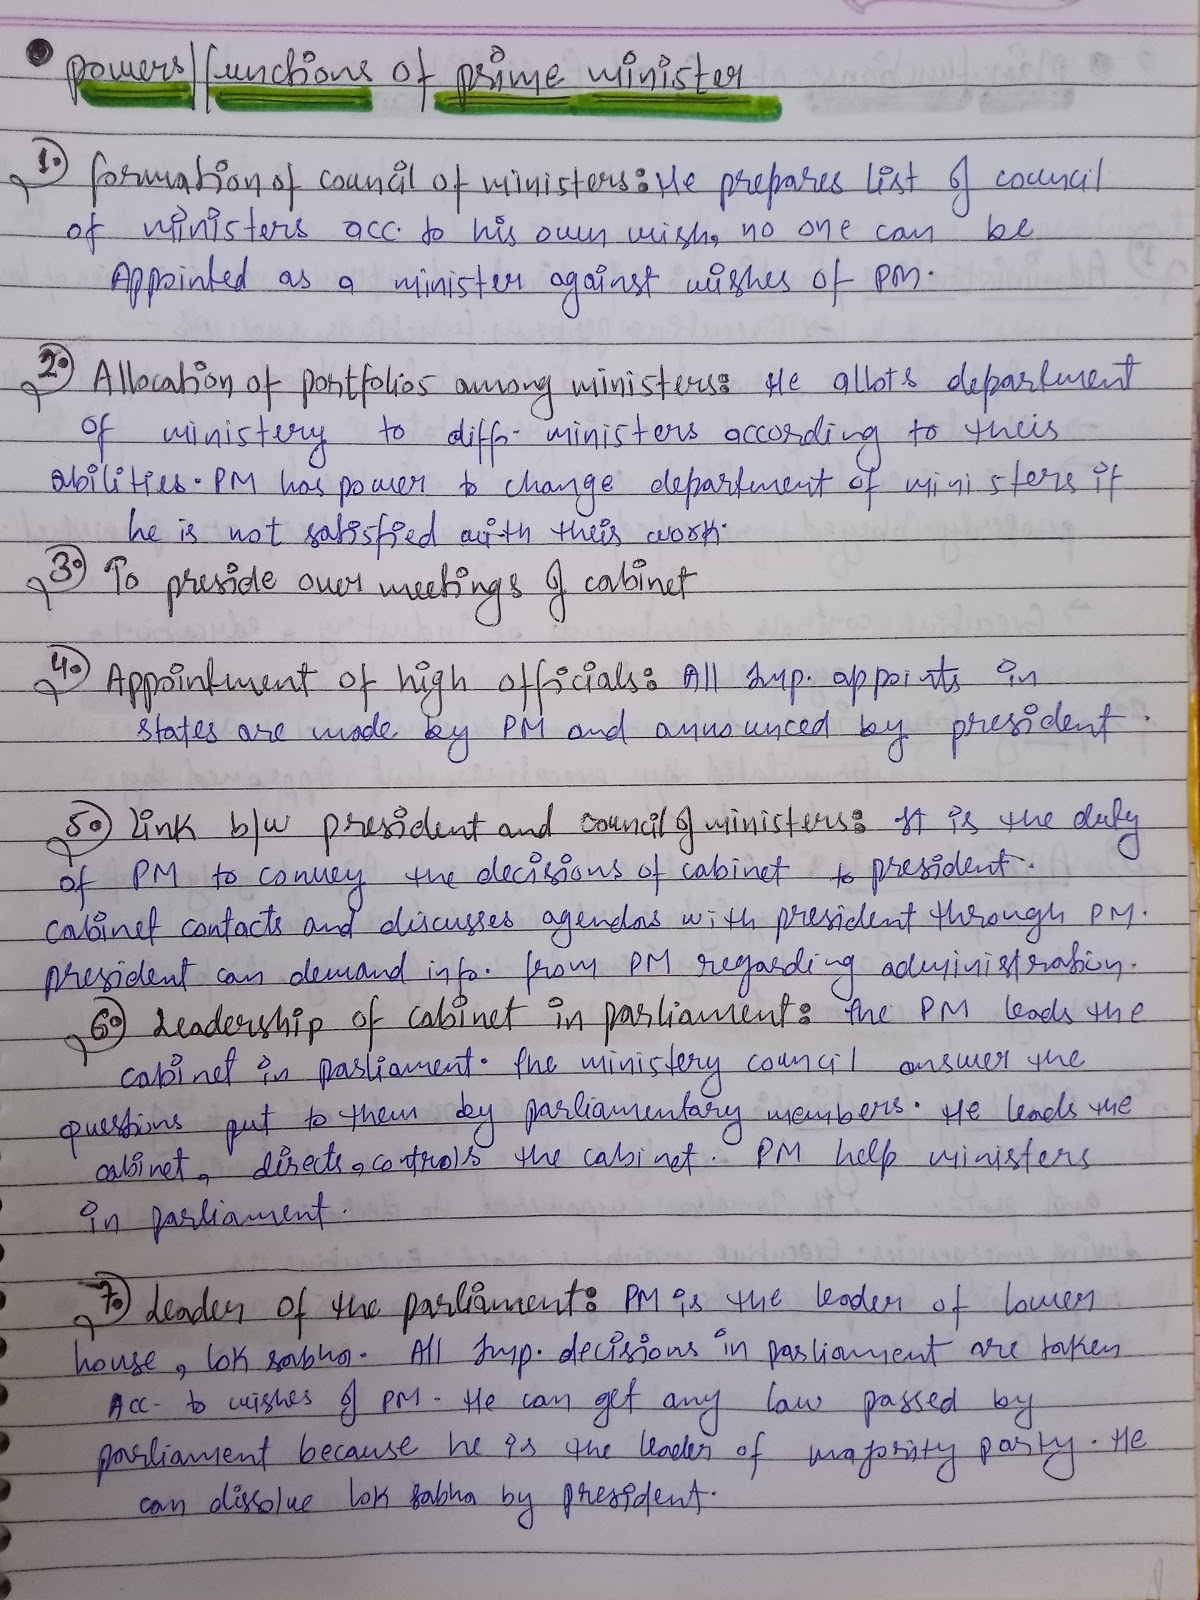 powers/functions of prime minister
1. formation of council of ministers: He prepares list of council
of ministers acc. to his own wish, no one can be
Appointed as a minister against wishes of PM.
2. Allocation of portfolios among ministers: He allots department
of ministery to diff. ministers according to their
abilities. PM has power to change department of ministers if
he is not satisfied with their work.
3. To preside over meetings of cabinet
4. Appointment of high officials: All Imp. appoints in
states are made by PM and announced by president.
5. Link b/w president and council of ministers: It is the duty
of PM to convey the decisions of cabinet to president.
cabinet contacts and discusses agendas with president through PM.
president can demand info. from PM regarding administration.
6. Leadership of cabinet in parliament: the PM leads the
cabinet in parliament. the ministery council answer the
questions put to them by parliamentary members. He leads the
cabinet, directs, controls the cabinet. PM help ministers
in parliament.
7. Leader of the parliament: PM is the leader of lower
house, lok sabha. All Imp. decisions in parliament are taken
Acc. to wishes of PM. He can get any law passed by
parliament because he is the leader of majority party. He
can dissolve lok sabha by president.